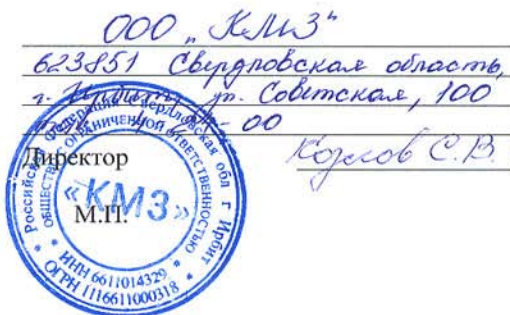 ООО „КМЗ"
623851 Свердловская область,
г. Ирбит, ул. Советская, 100
- 00
Директор
Козлов С.В.
М.П.
Российская Федерация Свердловская обл г Ирбит
ОБЩЕСТВО С ОГРАНИЧЕННОЙ ОТВЕТСТВЕННОСТЬЮ
«КМЗ»
* ИНН 6611014329 *
* ОГРН 1116611000318 *